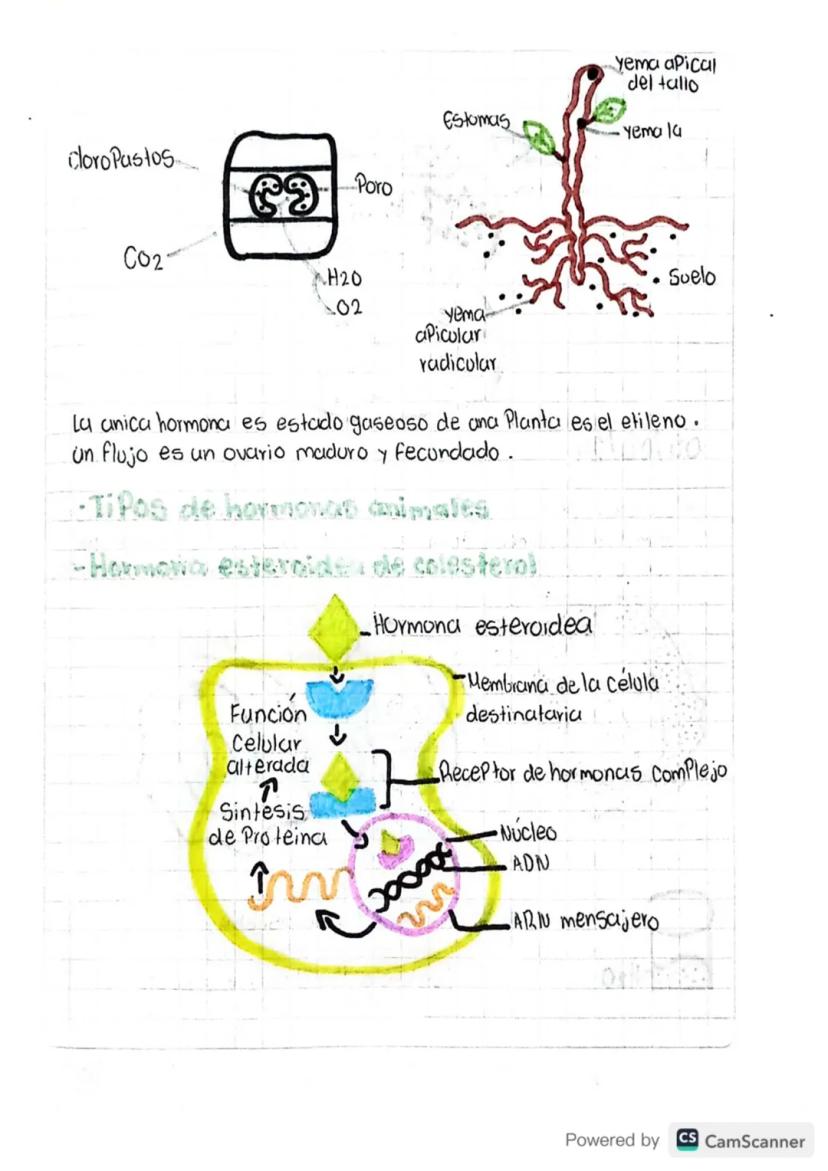 yema apical
del tallo
Estomas
yema la
cloroPastos
Poro
CO2
H2O
O2
Suelo
yema
apicular
radicular
La unica hormona es estado gaseoso de una Planta es el etileno.
un flujo es un ovario maduro y fecundado.
·Tipos de hormonas animales
-Hormona esteroidea de colesterol
Hormona esteroidea
Membrana de la célula
destinataria
Función
celular
alterada
Receptor de hormonas complejo
Sintesis
de Proteina
Núcleo
ADN
ARN mensajero
Powered by CS CamScanner